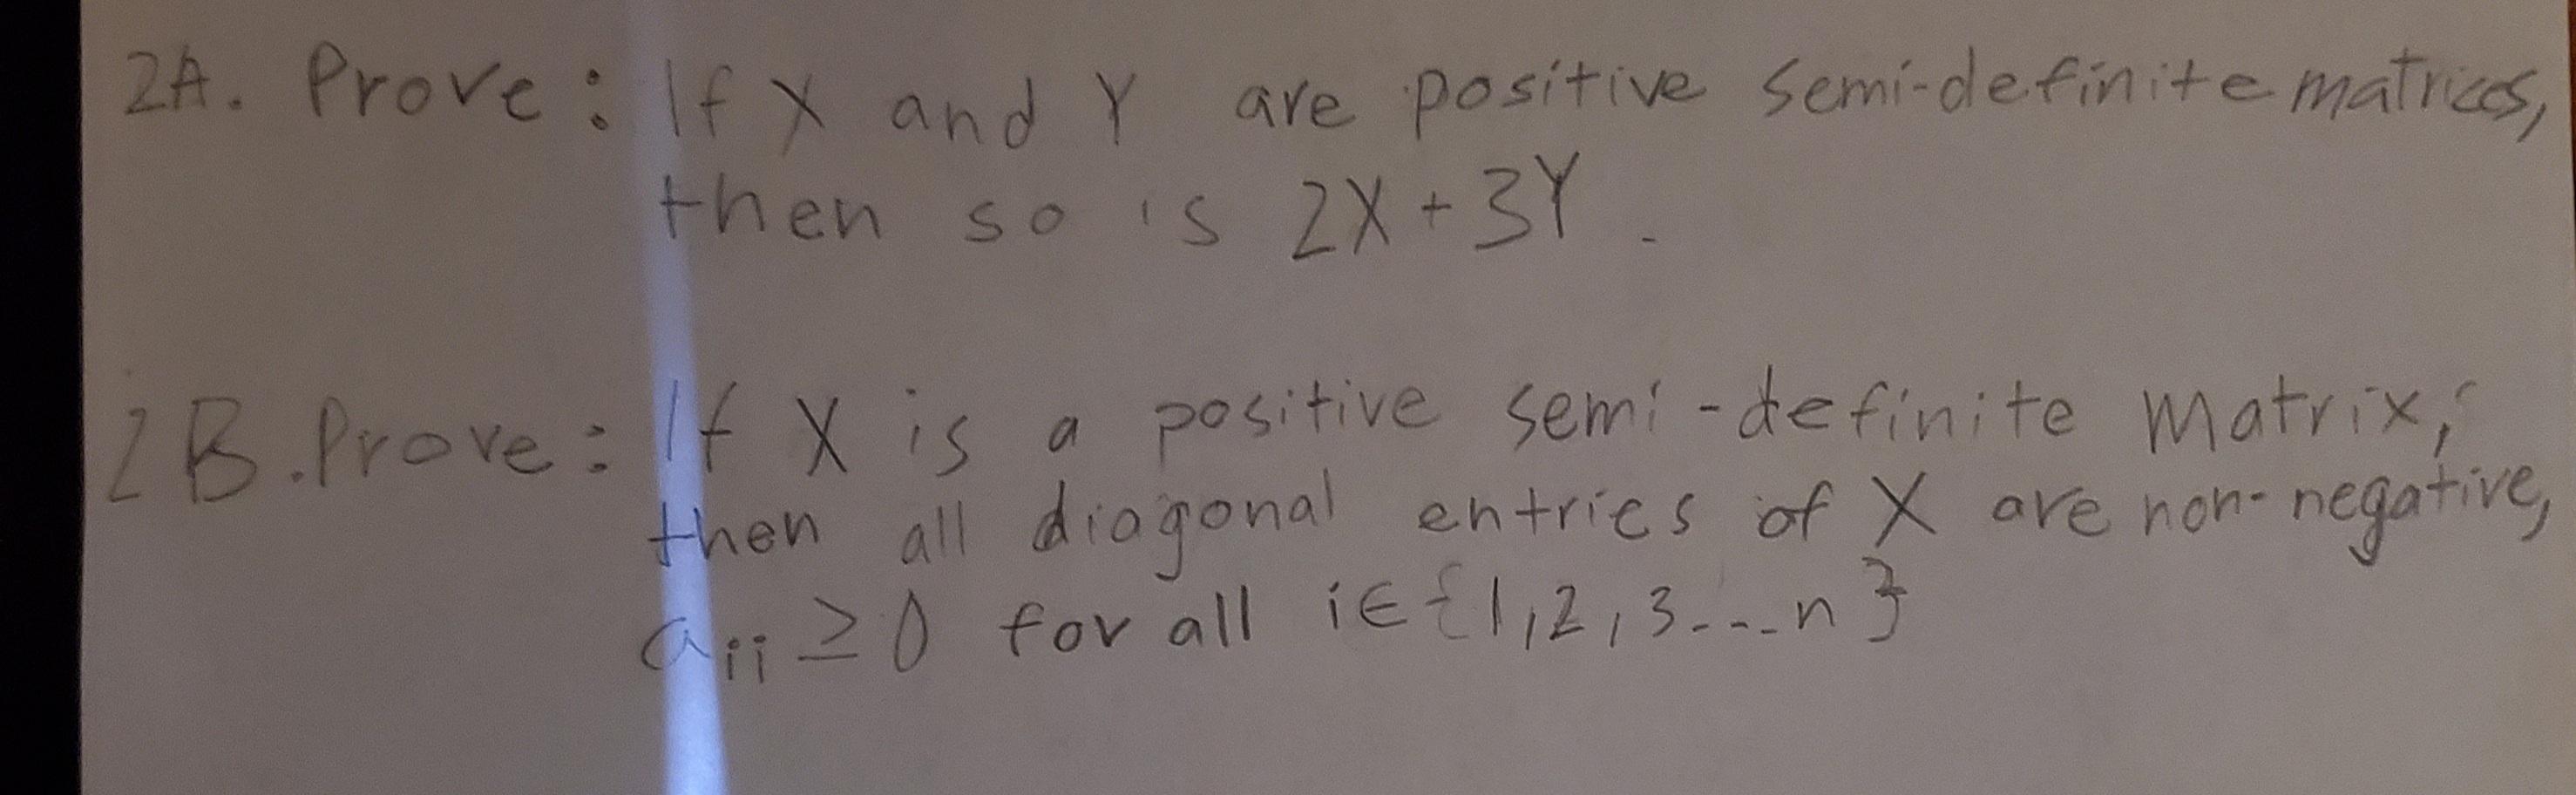 2A. Prove: If X and Y are positive semi-definite matrices,
then so is 2X + 3Y.
2B. Prove: If X is a positive semi-definite Matrix,
then all diagonal entries of X are non-negative,
aᵢᵢ ≥ 0 for all i ∈ {1, 2, 3...n}